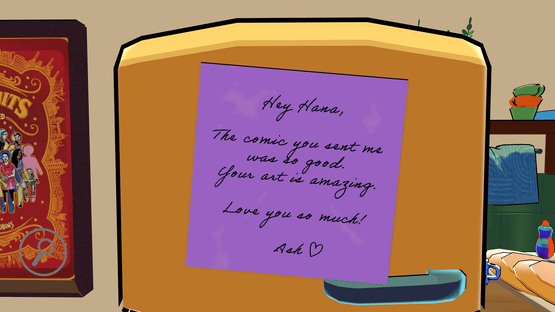 Hey Hana,
The comic you sent me
was so good.
Your art is amazing.
Love you so much!
Ash ♡